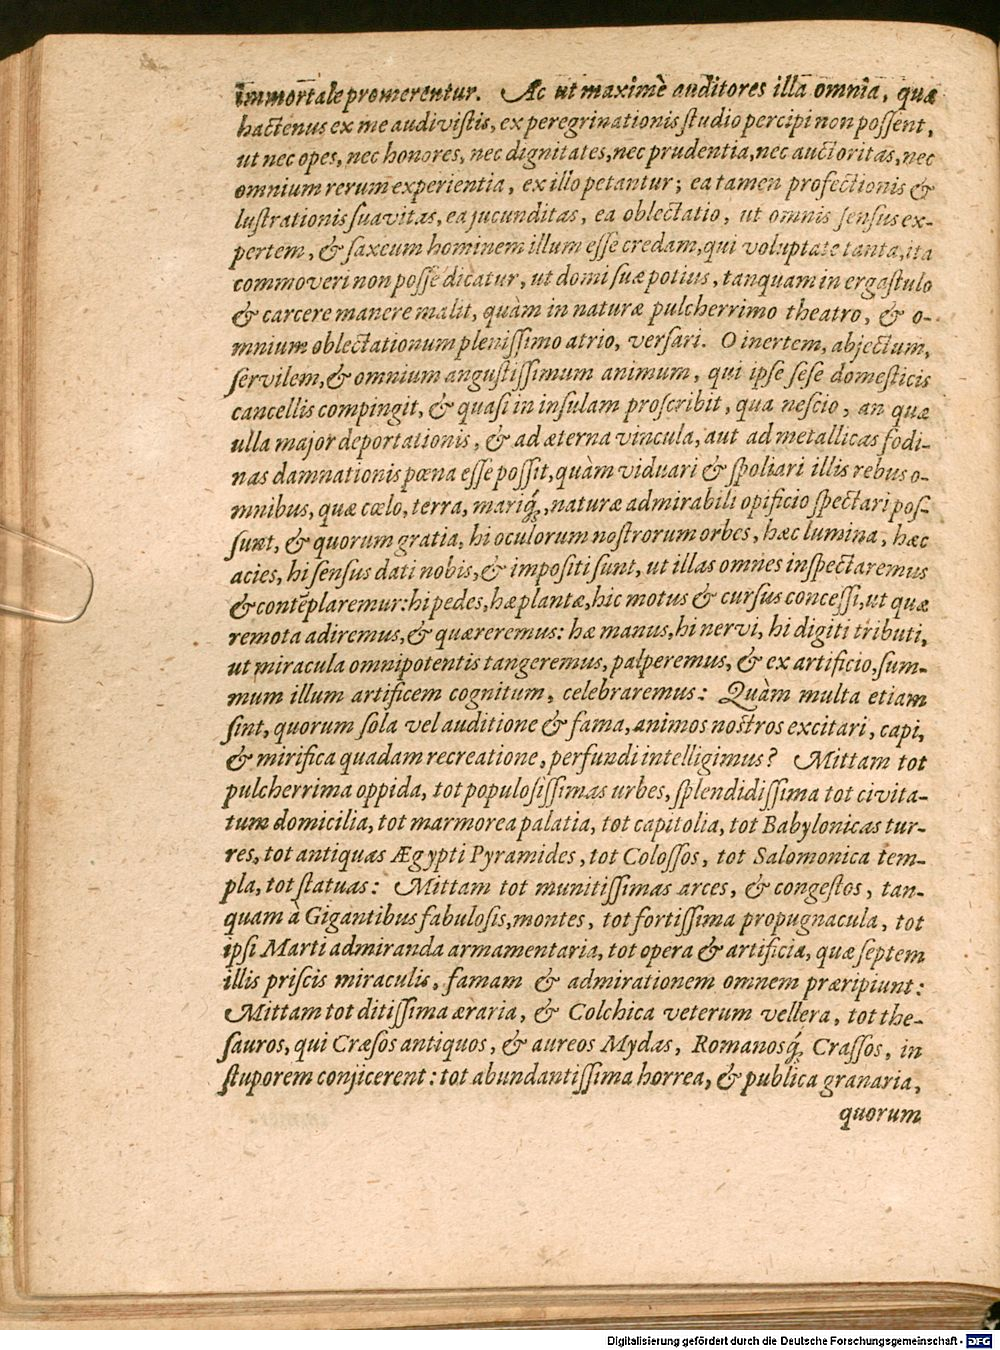 immortale promerentur. Ac ut maximè auditores illa omnia, quæ
hactenus ex me audivistis, ex peregrinationis studio percipi non possent,
ut nec opes, nec honores, nec dignitates, nec prudentia, nec auctoritas, nec
omnium rerum experientia, ex illo petantur; ea tamen profectionis &
lustrationis suavitas, ea jucunditas, ea oblectatio, ut omnis sensus ex-
pertem, & saxeum hominem illum esse credam, qui voluptate tanta, ita
commoveri non posse dicatur, ut domi suæ potius, tanquam in ergastulo
& carcere manere malit, quàm in naturæ pulcherrimo theatro, & o-
mnium oblectationum plenissimo atrio, versari. O inertem, abjectum,
servilem, & omnium angustissimum animum, qui ipse sese domesticis
cancellis compingit, & quasi in insulam proscribit, qua nescio, an quæ
ulla major deportationis, & ad æterna vincula, aut ad metallicas fodi-
nas damnationis pœna esse possit, quàm viduari & spoliari illis rebus o-
mnibus, quæ cœlo, terra, mariq́;, naturæ admirabili opificio spectari pos-
sunt, & quorum gratia, hi oculorum nostrorum orbes, hæc lumina, hæc
acies, hi sensus dati nobis, & impositi sunt, ut illas omnes inspectaremus
& contēplaremur: hi pedes, hæ plantæ, hic motus & cursus concessi, ut quæ
remota adiremus, & quæreremus: hæ manus, hi nervi, hi digiti tributi,
ut miracula omnipotentis tangeremus, palperemus, & ex artificio, sum-
mum illum artificem cognitum, celebraremus: Quàm multa etiam
sint, quorum sola vel auditione & fama, animos nostros excitari, capi,
& mirifica quadam recreatione, perfundi intelligimus? Mittam tot
pulcherrima oppida, tot populosissimas urbes, splendidissima tot civita-
tum domicilia, tot marmorea palatia, tot capitolia, tot Babylonicas tur-
res, tot antiquas Ægypti Pyramides, tot Colossos, tot Salomonica tem-
pla, tot statuas: Mittam tot munitissimas arces, & congestos, tan-
quam à Gigantibus fabulosis, montes, tot fortissima propugnacula, tot
ipsi Marti admiranda armamentaria, tot opera & artificia, quæ septem
illis priscis miraculis, famam & admirationem omnem præripiunt:
Mittam tot ditissima æraria, & Colchica veterum vellera, tot the-
sauros, qui Cræsos antiquos, & aureos Mydas, Romanosq́; Crassos, in
stuporem conjicerent: tot abundantissima horrea, & publica granaria,
quorum
Digitalisierung gefördert durch die Deutsche Forschungsgemeinschaft - DFG